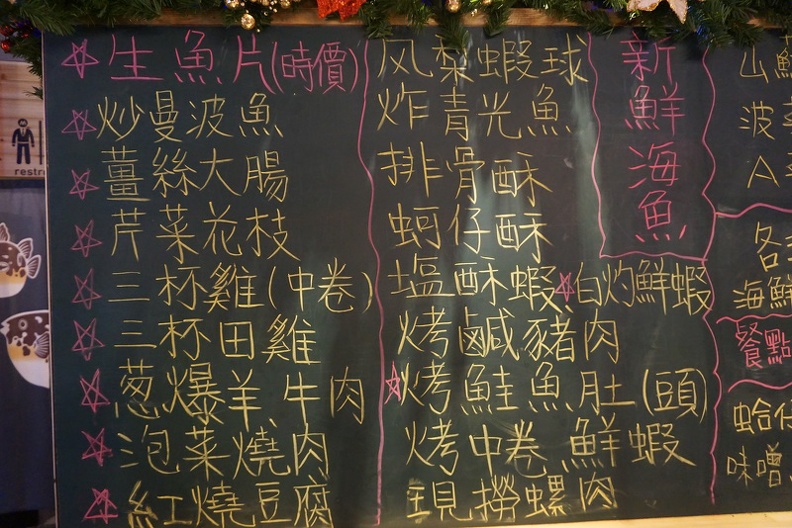 生魚片(時價)
炒曼波魚
薑絲大腸
芹菜花枝
三杯雞(中卷)
三杯田雞
葱爆羊、牛肉
泡菜燒肉
紅燒豆腐
风梨蝦球
炸青光魚
排骨酥
蚵仔酥
塩酥蝦、白灼鮮蝦
烤鹹豬肉
烤鮭魚、肚(頭)
烤中卷、鮮蝦
現撈螺肉
新鮮海魚
山
波
A
各
海鮮
餐點
蛤仔
味噌
restr